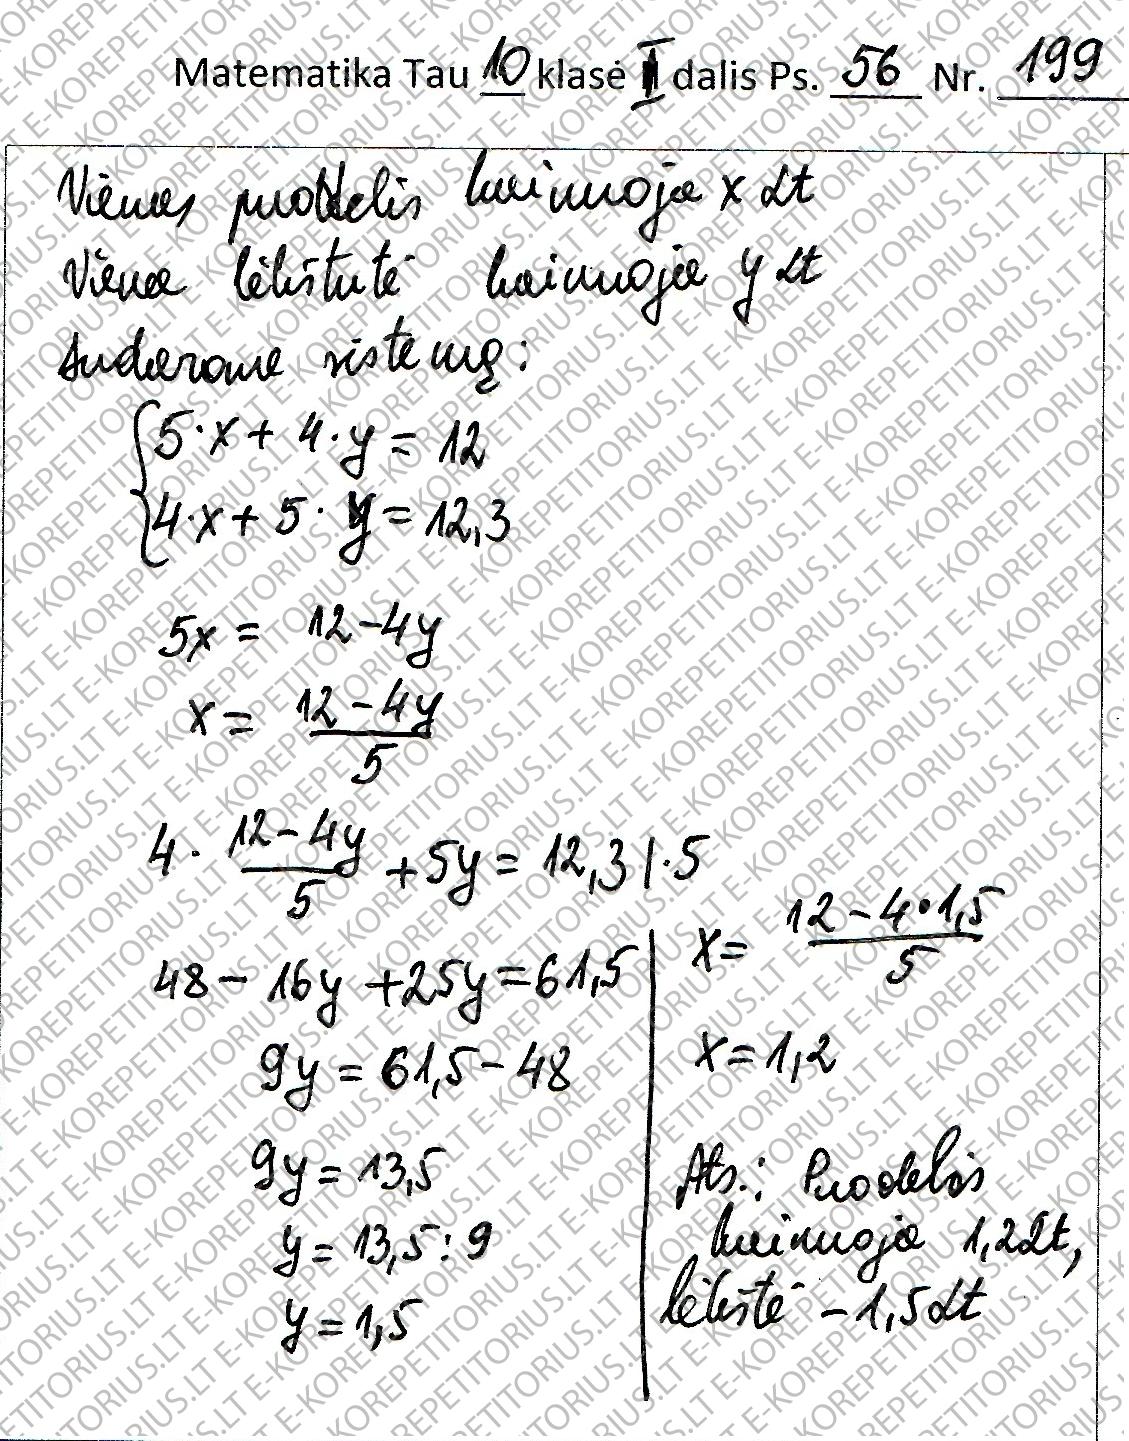 Matematika Tau 10 klasė II dalis Ps. 56 Nr. 199
Vienas puodelis kainuoja x Lt
Viena lėkštutė kainuoja y Lt
Sudarome sistemą:
5·x + 4·y = 12
4·x + 5·y = 12,3
5x = 12-4y
x = 12-4y / 5
4· 12-4y / 5 + 5y = 12,3 |·5
48 - 16y + 25y = 61,5
9y = 61,5 - 48
9y = 13,5
y = 13,5 : 9
y = 1,5
x = 12-4·1,5 / 5
x = 1,2
Ats.: Puodelis
kainuoja 1,2Lt,
lėkštė - 1,5Lt
E-KOREPETITORIUS.LT